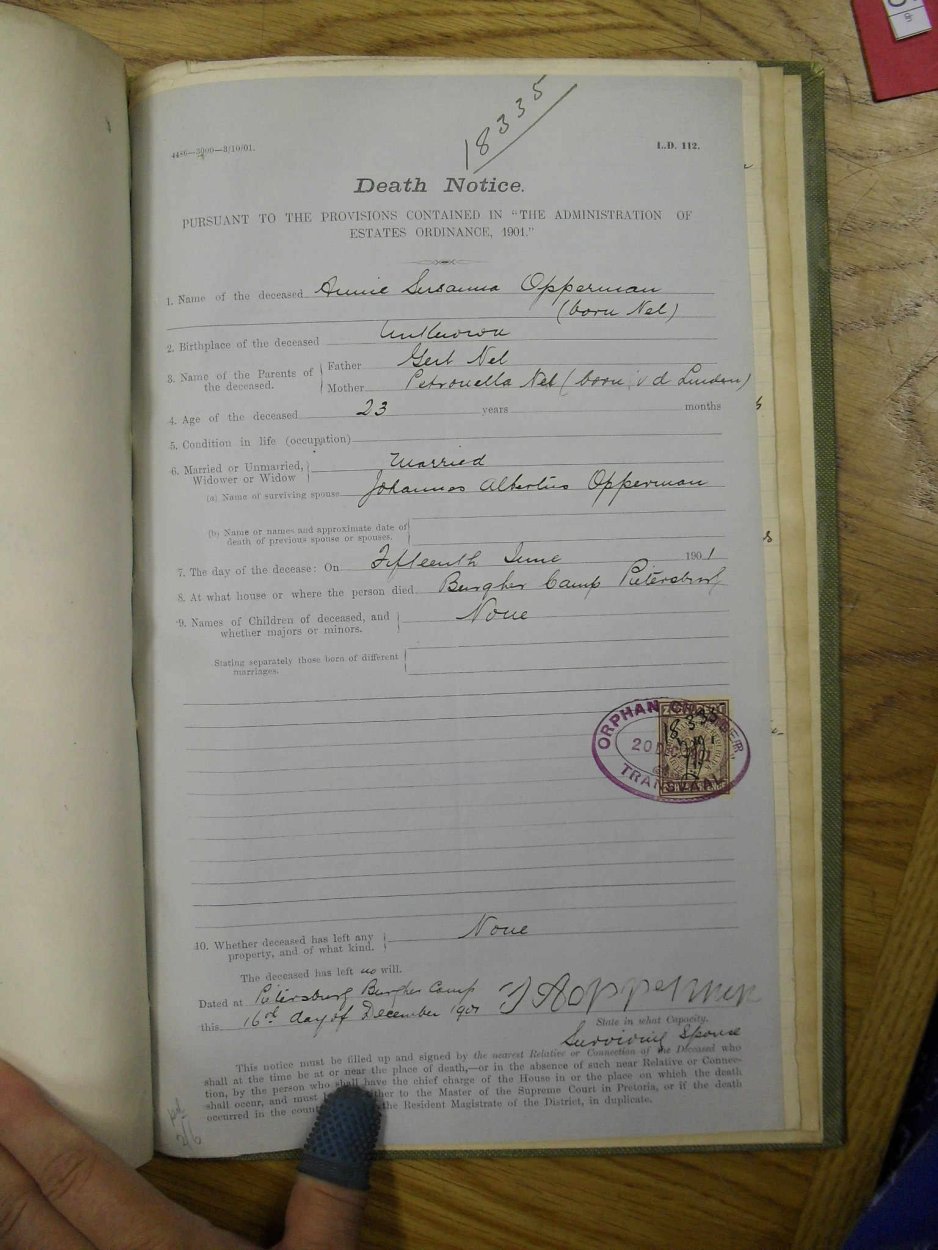 18335
4486—3000—3/10/01.
L.D. 112.
Death Notice.
PURSUANT TO THE PROVISIONS CONTAINED IN "THE ADMINISTRATION OF
ESTATES ORDINANCE, 1901."
1. Name of the deceased Annie Susanna Opperman
(born Nel)
2. Birthplace of the deceased Unknown
3. Name of the Parents of the deceased. Father Gert Nel
Mother Petronella Nel (born v d Linden)
4. Age of the deceased 23 years months
5. Condition in life (occupation)
6. Married or Unmarried, Widower or Widow Married
(a) Name of surviving spouse Johannes Albertus Opperman
(b) Name or names and approximate date of
death of previous spouse or spouses.
7. The day of the decease: On Fifteenth June 1901
8. At what house or where the person died Burgher Camp Pietersburg
9. Names of Children of deceased, and None
whether majors or minors.
Stating separately those born of different
marriages.
ORPHAN CHAMBER,
18335
20 DEC
TRANSVAAL
10. Whether deceased has left any None
property, and of what kind.
The deceased has left no will.
Dated at Pietersburg Burgher Camp
this 16th day of December 1901
State in what Capacity.
Surviving Spouse
This notice must be filled up and signed by the nearest Relative or Connection of the Deceased who
shall at the time be at or near the place of death,—or in the absence of such near Relative or Connec-
tion, by the person who shall have the chief charge of the House in or the place on which the death
shall occur, and must either to the Master of the Supreme Court in Pretoria, or if the death
occurred in the the Resident Magistrate of the District, in duplicate.